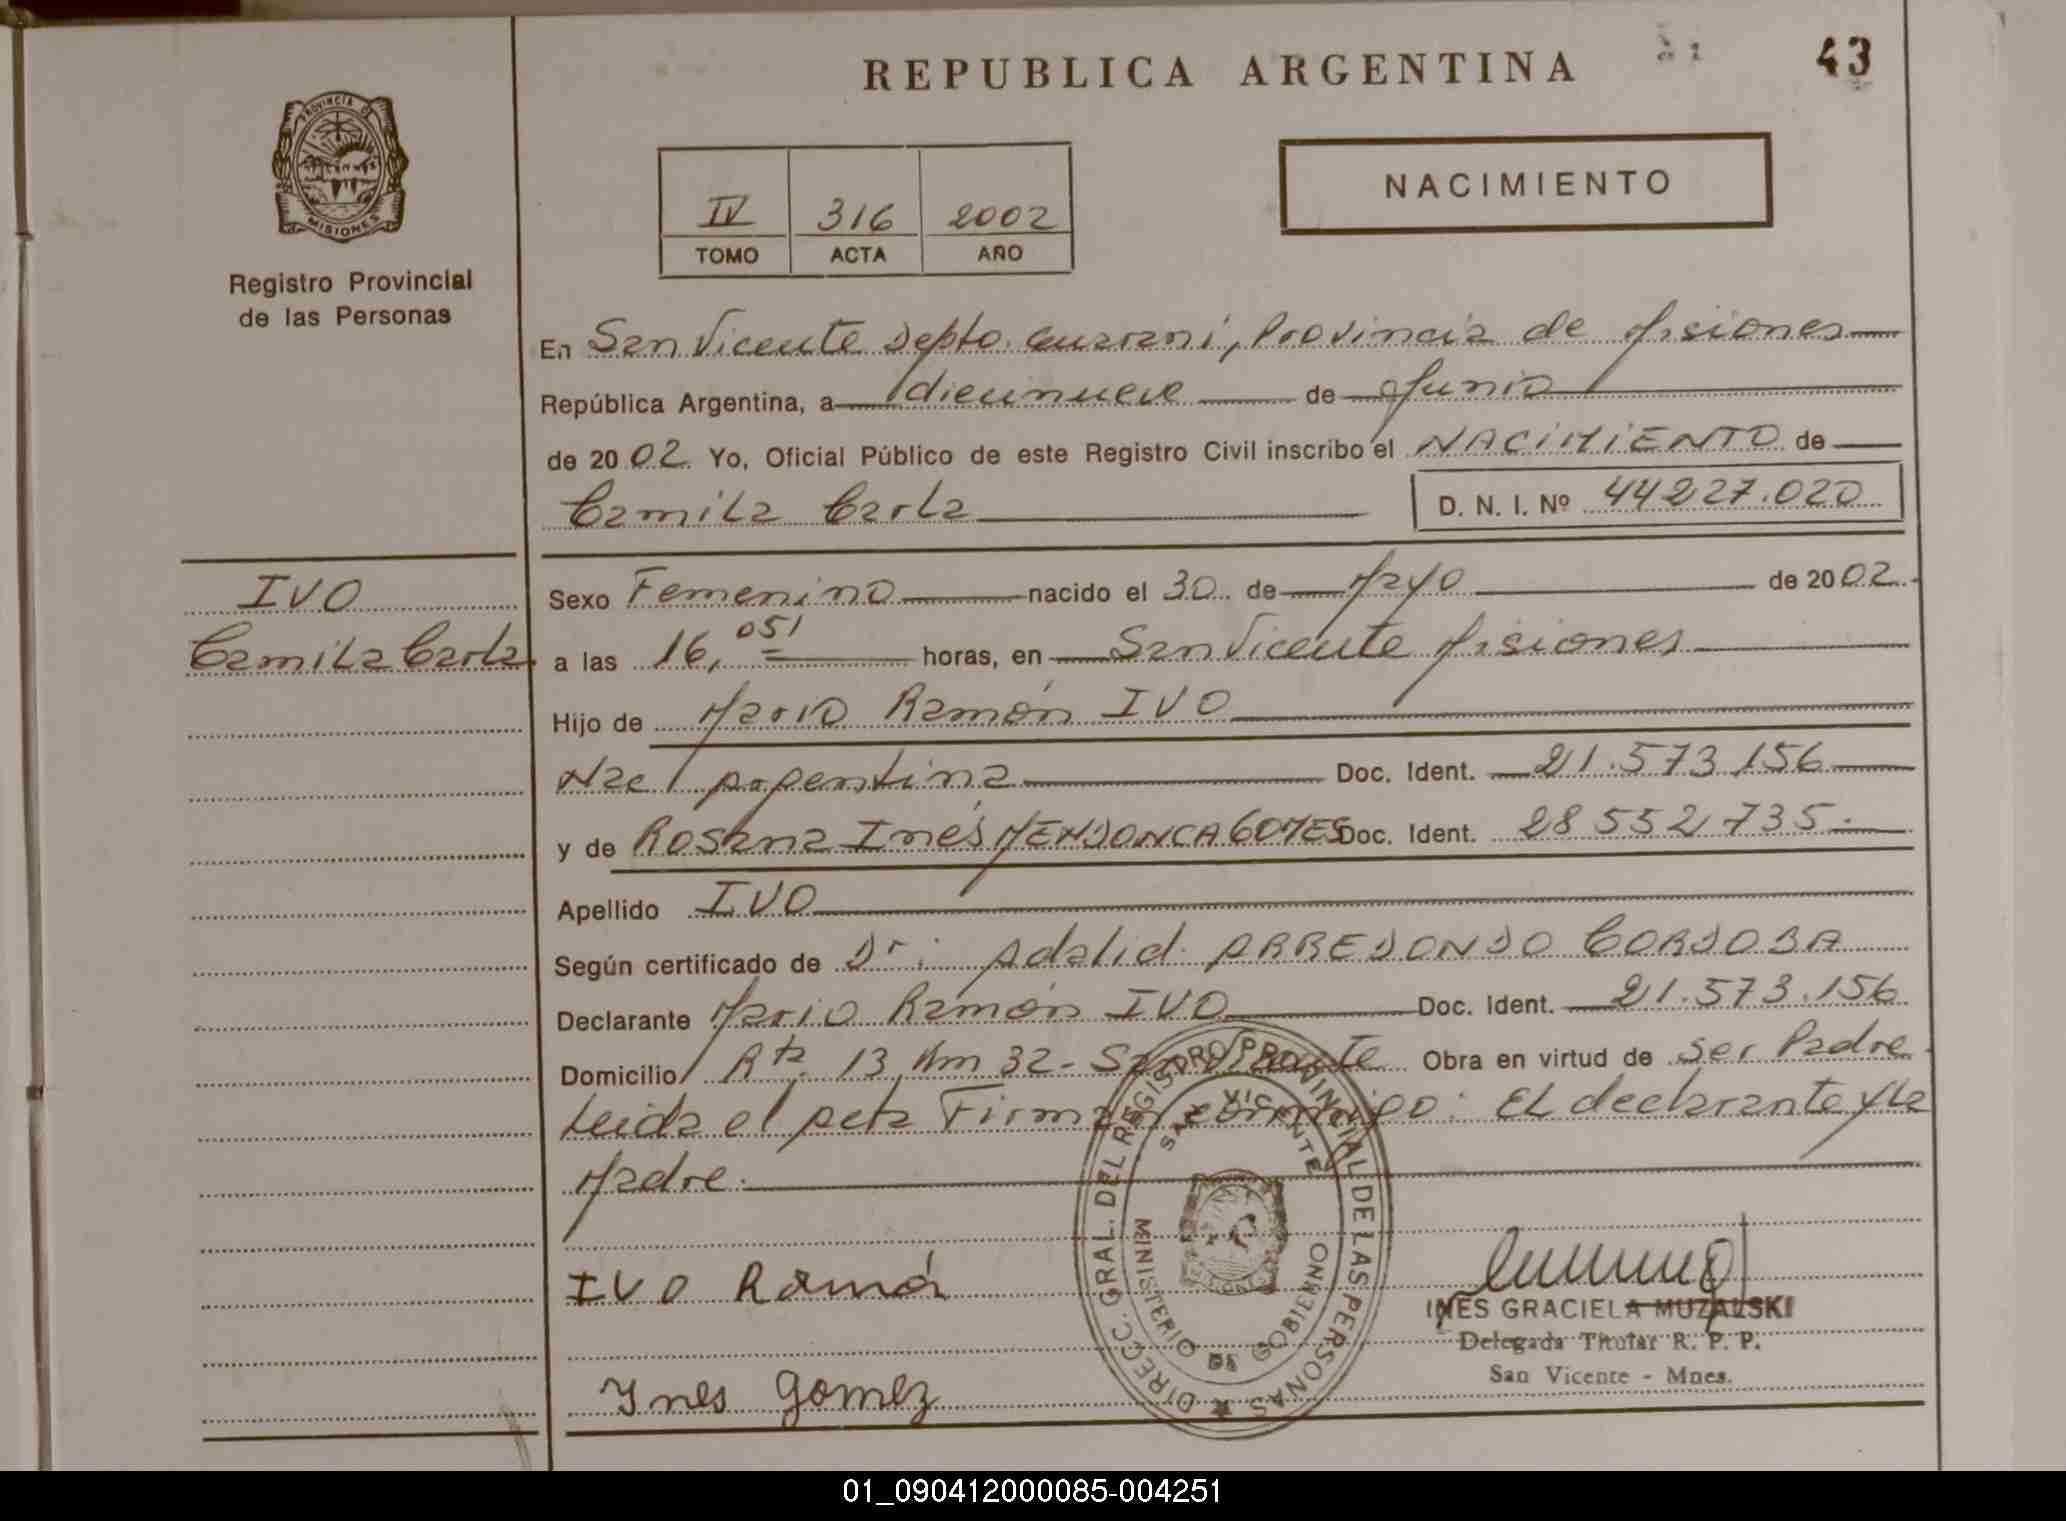 REPUBLICA ARGENTINA
43
PROVINCIA DE
MISIONES
Registro Provincial
de las Personas
IV 316 2002
TOMO ACTA AÑO
NACIMIENTO
En San Vicente Depto. Guarani, Provincia de Misiones
República Argentina, a diecinueve de Junio
de 2002. Yo, Oficial Público de este Registro Civil inscribo el NACIMIENTO de
Camila Carla D. N. I. Nº 44227.020
IVO
Camila Carla.
Sexo Femenino nacido el 30 de Mayo de 2002.
a las 16,05' horas, en San Vicente Misiones
Hijo de Mario Ramón IVO
Nac. Argentina Doc. Ident. 21.573.156
y de Rosana Inés MENDONCA GOMES Doc. Ident. 28552735.
Apellido IVO
Según certificado de Dr: Adalid ARREDONDO CORDOBA
Declarante Mario Ramón IVO Doc. Ident. 21.573.156
Domicilio Rta. 13 Km 32- San Vicente Obra en virtud de ser Padre.
Leida el Acta Firman conmigo: El declarante y la
Madre.
DIRECC. GRAL. DEL REGISTRO PROVINCIAL DE LAS PERSONAS
SAN VICENTE
MINISTERIO DE GOBIERNO
IVO Ramón
Ynes Gomez
INES GRACIELA MUZALSKI
Delegada Titular R. P. P.
San Vicente - Mnes.
01_090412000085-004251